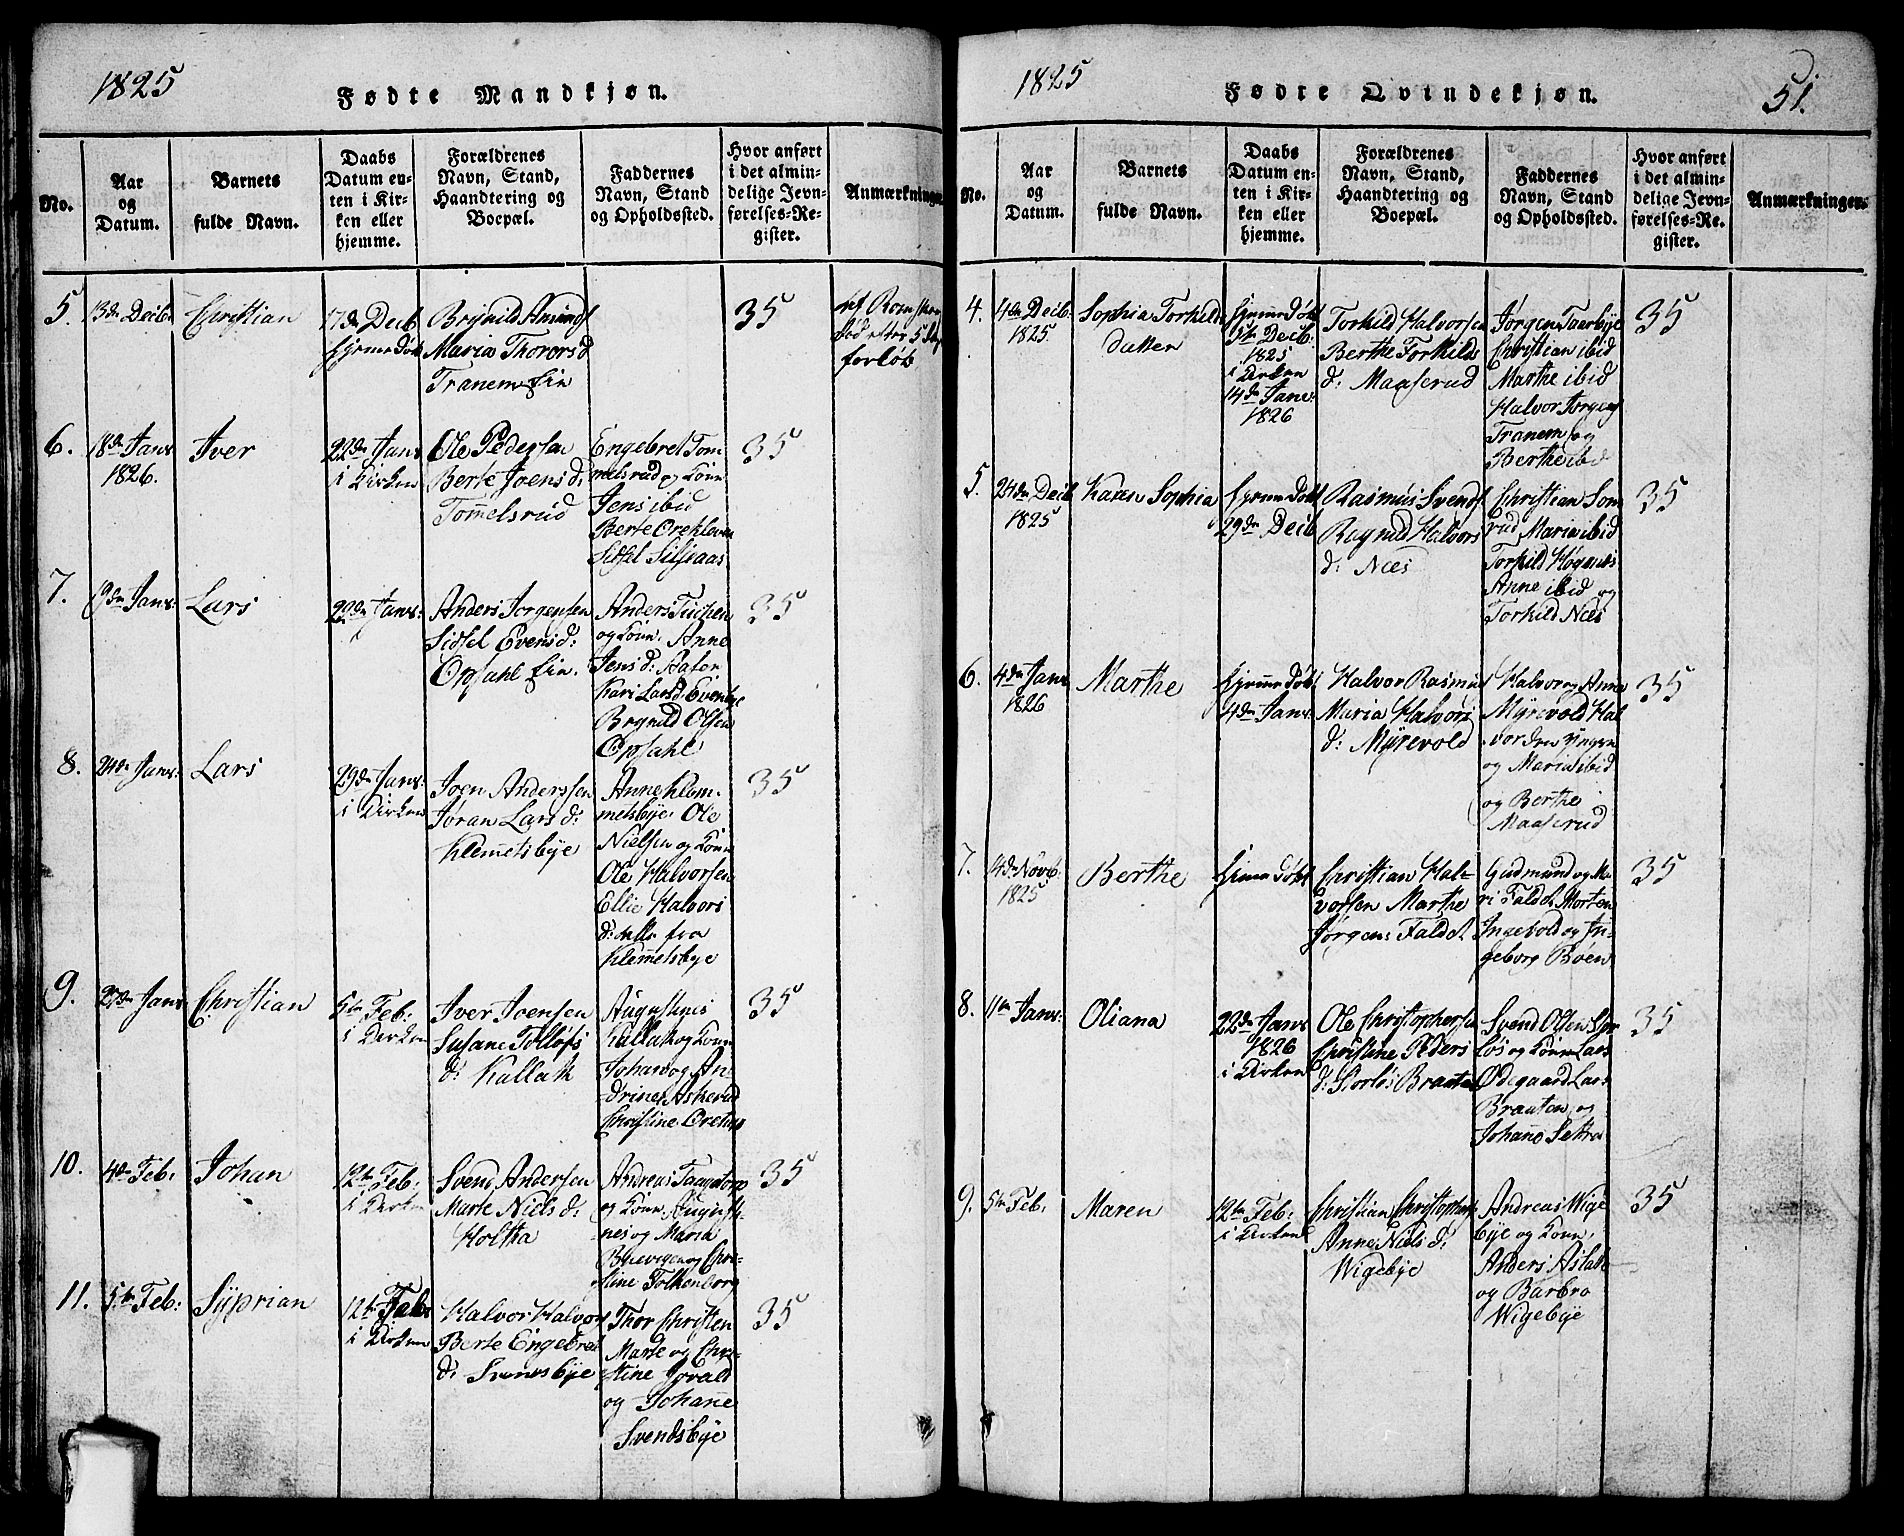 1825
Fødte Mandkjøn.
No.
Aar
og
Datum.
Barnets
fulde Navn.
Daabs
Datum en-
ten i Kir-
ken eller
hjemme.
Forældrenes
Navn, Stand,
Haandtering og
Boepæl.
Faddernes
Navn, Stand
og Opholdssted.
Hvor anført
i det almin-
delige Jevn-
førelses-Re-
gister.
Anmærkninger.
5.
13de Decb:
Christian
17de Decb
hjemme døbt
Maria Thorersd
Tranem Eie
35
forløb
6.
18de Janv
1826.
Iver
22de Janv
i Kirken
Ole Pedersen
Berte Joensd:
Tom̄elsrud
Engebret Tom
melsrud og Kone
Jens ibid
Berte Oreklaven
Sidsel Siljeaas
35
7.
9de Janv:
Lars
22de Janv:
Anders Jorgensen
Sidsel Evensd:
Opsahl Eie.
Anders
og Kone, Anne
Jensd:
Kari Larsd. Evenbye
Brynild Olsen
Opsahl
35
8.
24de Janv:
Lars
29de Janv:
i Kirken
Joen Anderssen
Jøran Larsd:
Klem̄etsbye
Anne Klem-
metsbye. Ole
Nielsen og Kone
Ole Halvorsen
Ellie Halvors
d: alle fra
Klem̄etsbye
35
9.
27de Janv
Christian
5te Feb:
i Kirken
Iver Joensen
Susane Tolløfs
d: Kallak
Augustinus
Kallak og Kone
Johans og An-
drine Askerud
Christine
35
10.
4de Feb:
Johan
12te Feb:
i Kirken
Svend Andersen
Marte Nielsd:
Holtka
Andreas
og Kone, Augusti-
nes og Maria
og Chri-
stine Folkenborg
35
11.
5te Feb:
Syprian
12te Feb:
i Kirken
Halvor Halvors
Berte Engebret
d: Svendsbye
Thor Christen
Marte og Chri-
stine
og Johan̄e
Svendsbye
35
1825
Fødte Qvindekjøn.
51.
No.
Aar
og
Datum.
Barnets
fulde Navn.
Daabs
Datum en-
ten i Kir-
ken eller
hjemme.
Forældrenes
Navn, Stand,
Haandtering og
Boepæl.
Faddernes
Navn, Stand
og Opholdssted.
Hvor anført
i det almin-
delige Jevn-
førelses-Re-
gister.
Anmærkninger.
4.
4de Decb.
1825
Sophia Torkilds
datter
hjemmedøbt
5te Decb:
1825
i Kirken
14de Janv:
1826
Torkild Halvorsen
Berthe Torkilds
d: Maaserud
Jørgen Taarbye
Christian ibid
Marthe ibid
Halvor Jørgens
Tranem og
Berthe ibid
35
5.
24de Decb
1825
Karen Sophia
hjemmedøbt
29de Decb
Rasmus Svends
Ragnild Halvors
d: Næs
Christian Som
rud, Maria ibid
Torkild
Anne ibid og
Torkild Næs
35
6.
4de Janv
1826
Marthe
hjemmedøbt
4de Janv:
Halvor Rasmus
Maria Halvors
d: Myrevold
Halvor og Anne
Myrevold Hal
vor den Yngre
og Maria ibid
og Berthe
Maaserud
35
7.
14de Novb
1825
Berthe
hjemedøbt
Christian Hal-
vorsen Marthe
Jørgens Faldet
Gudmund og Ma
ri Faldet Morten
Ingevold og In-
geborg Boen
35
8.
11te Janv:
Oliana
22de Janv
1826
i Kirken
Ole Christophersen
Christine Peders
d: Storløs Braaten
Svend Olsen
og Kone Lars
Ødegaard Lars
Braaten og
Johan̄e
35
9.
5te Feb:
Maren
12te Feb:
i Kirken
Christian Christophers
Anne Nielsd:
Wigebye
Andreas Wige
bye og Kone,
Anders Aslak
og Barbro
Wigebye
35